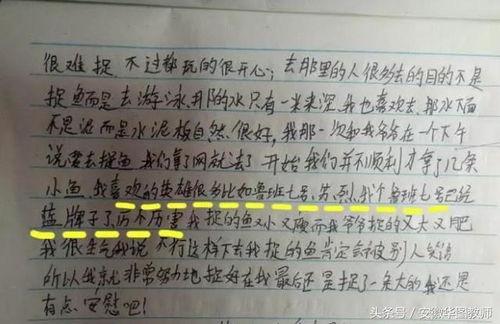 很难捉，不过都玩的很开心；去那里的人很多去的目的不是
捉鱼而是去游泳，那的水只有一米来深，我也喜欢去，那水下面
不是泥而是水泥板自然，很好，我那一次和我爷爷在一个下午
说要去捉鱼，我们拿了网就去了开始我们并不顺利才拿了几条
小鱼，我喜欢的英雄很多比如鲁班七号，苏烈，我个鲁班七号已经
蓝牌子了，厉不厉害我捉的鱼又小又瘦而我爷爷捉的又大又肥
我很生气我说，不行这样下去我捉的鱼肯定会被别人笑话
所以我就非常努力地捉好在我最后还是捉了一条大的我还是
有点安慰吧！
头条号／安徽华图教师